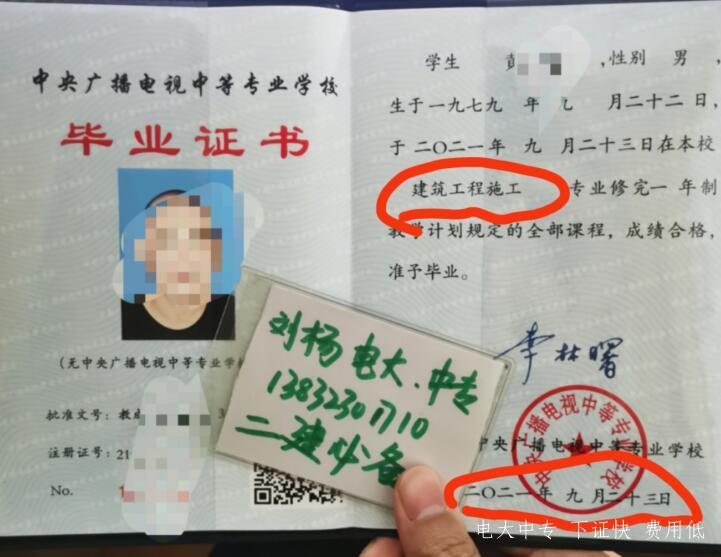 中央广播电视中等专业学校
毕业证书
(无中央广播电视中等专业学校
批准文号：教成
注册证号：21
No.
学生 彭 ，性别 男 ，
生于一九七九 年 九 月二十二日，
于二〇二一年 九 月二十三日在本校
建筑工程施工 专业修完一 年制
教学计划规定的全部课程，成绩合格，
准予毕业。
李林曙
中央广播电视中等专业学校
中央广播电视中等专业学校
二〇二一年 九 月二十三日
刘杨电大、中专
13832301710
二建必备
电大中专 下证快 费用低